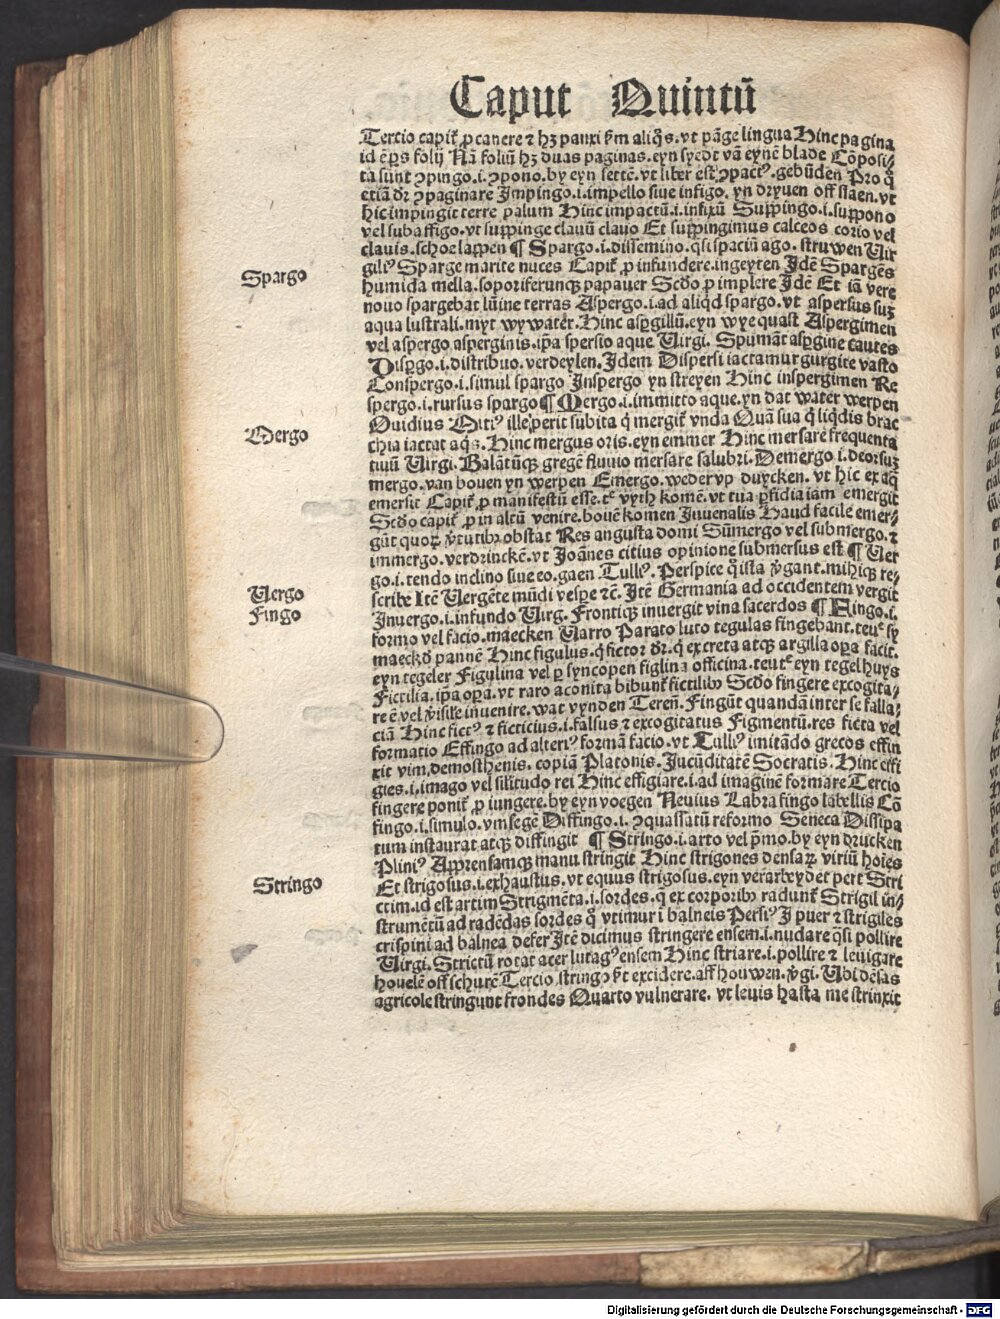 Caput Quintū
Tercio capit᷑ ꝓ canere ⁊ hꝫ panxi ẜm aliq̄s. vt pāge lingua Hinc pagina
id ē ꝑs folij Nā foliū hꝫ duas paginas. eyn sydt vā eynē blade Cōposi⸗
ta sunt ↄpingo .i. ↄpono. by eyn settē. vt liber est ↄpactꝰ. gebūden Pro q̄
etiā dr̄ ↄpaginare Impingo .i. impello siue infigo. yn dryuen off slaen. vt
hic impingit terre palum Hinc impactū .i. infixū Suppingo .i. suppono
vel subaffigo. vt suppinge clauū clauo Et suppingimus calceos corio vel
clauis. schoe lappen ¶ Spargo .i. dissemino. qsi spaciū ago. struwen Uir
Spargo
giliꝰ Sparge marite nuces Capit᷑ ꝓ infundere. ingeyten Idē Spargēs
humida mella. soporiferunqꝫ papauer Scd̄o ꝓ implere Idē Et iā vere
nouo spargebat lūine terras Aspergo .i. ad aliqd spargo. vt aspersus suꝫ
aqua lustrali. myt wywater. Hinc asꝑgillū. eyn wye quast Aspergimen
vel aspergo asperginis. ip̄a spersio aque Uirgi. Spumāt asꝑgine cautes
Disꝑgo .i. distribuo. verdeylen. Idem Dispersi iactamur gurgite vasto
Conspergo .i. simul spargo Inspergo yn streyen Hinc inspergimen Re
spergo .i. rursus spargo ¶ Mergo .i. immitto aque. yn dat water werpen
Mergo
Ouidius Mitiꝰ ille perit subita q̄ mergit᷑ vnda Quā sua q̄ liqdis brac
chia iactat aqs. Hinc mergus oris. eyn emmer Hinc mersare frequenta
tiuū Uirgi. Balātūqꝫ gregē fluuio mersare salubri. Demergo .i. deorsuꝫ
mergo. van bouen yn werpen Emergo. weder vp duycken. vt hic ex aq̄
emersit Capit᷑ ꝓ manifestū esse. vt tua ꝑfidia iam emergit
Scd̄o capit᷑ ꝓ in altū venire. bouē komen Iuuenalis Haud facile emer⸗
gūt quoꝝ v̄tutibꝫ obstat Res angusta domi Sūmergo vel submergo. ⁊
immergo. verdrinckē. vt Joānes citius opinione submersus est ¶ Uer
Uergo
go .i. tendo inclino siue eo. gaen Tulliꝰ. Perspice q̄ ista v̄gant. mihiqꝫ re⸗
scribe Itē Uergēte mūdi vespe ⁊c̄. Itē Germania ad occidentem vergit
Fingo
Inuergo .i. infundo Uirg. Frontiqꝫ inuergit vina sacerdos ¶ Fingo .i.
formo vel facio. maecken Uarro Parato luto tegulas fingebant.
maeckd̄ pannē Hinc figulus. q̄ fictor dr̄. q̄ ex creta atqꝫ argilla oꝑa facit.
eyn tegeler Figulina vel ꝑ syncopen figlina officina. eyn tegelhuys
Fictilia. ip̄a oꝑa. vt raro aconita bibunt᷑ fictilibꝫ Scd̄o fingere excogita⸗
re ē vel inuenire. wat vynden Teren. Fingūt quandā inter se falla⸗
ciā Hinc fictꝰ ⁊ ficticius .i. falsus ⁊ excogitatus Figmentū. res ficta vel
formatio Effingo ad alteriꝰ formā facio. vt Tulliꝰ imitādo grecos effin
xit vim demosthenis. copiā Platonis. Iucūditatē Socratis. Hinc effi
gies .i. imago vel silitudo rei Hinc effigiare .i. ad imaginē formare Tercio
fingere ponit᷑ ꝓ iungere. by eyn voegen Neuius Labra fingo labellis Cō
fingo .i. simulo. Diffingo .i. ↄquassatū reformo Seneca Dissipa
tum instaurat atqꝫ diffingit ¶ Stringo .i. arto vel p̄mo. by eyn drucken
Pliniꝰ Apprensamqꝫ manu stringit Hinc strigones densaꝝ viriū hoīes
Stringo
Et strigosus .i. exhaustus. vt equus strigosus. eyn verarbeydet pert Stri
ctim. id est artim Strigmēta .i. sordes. q̄ ex corporibꝫ radunt᷑ Strigil in⸗
strumētū ad radēdas sordes q̄ vtimur i balneis Persiꝰ I puer ⁊ strigiles
crispini ad balnea defer Itē dicimus stringere ensem .i. nudare qsi pollire
Uirgi. Strictū rotat acer lutagꝰ ensem Hinc striare .i. pollire ⁊ leuigare
houelē off schurē Tercio stringo excidere. aff houwen. v̄gi. Ubi dēsas
agricole stringunt frondes Quarto vulnerare. vt leuis hasta me strinxit
Digitalisierung gefördert durch die Deutsche Forschungsgemeinschaft - DFG